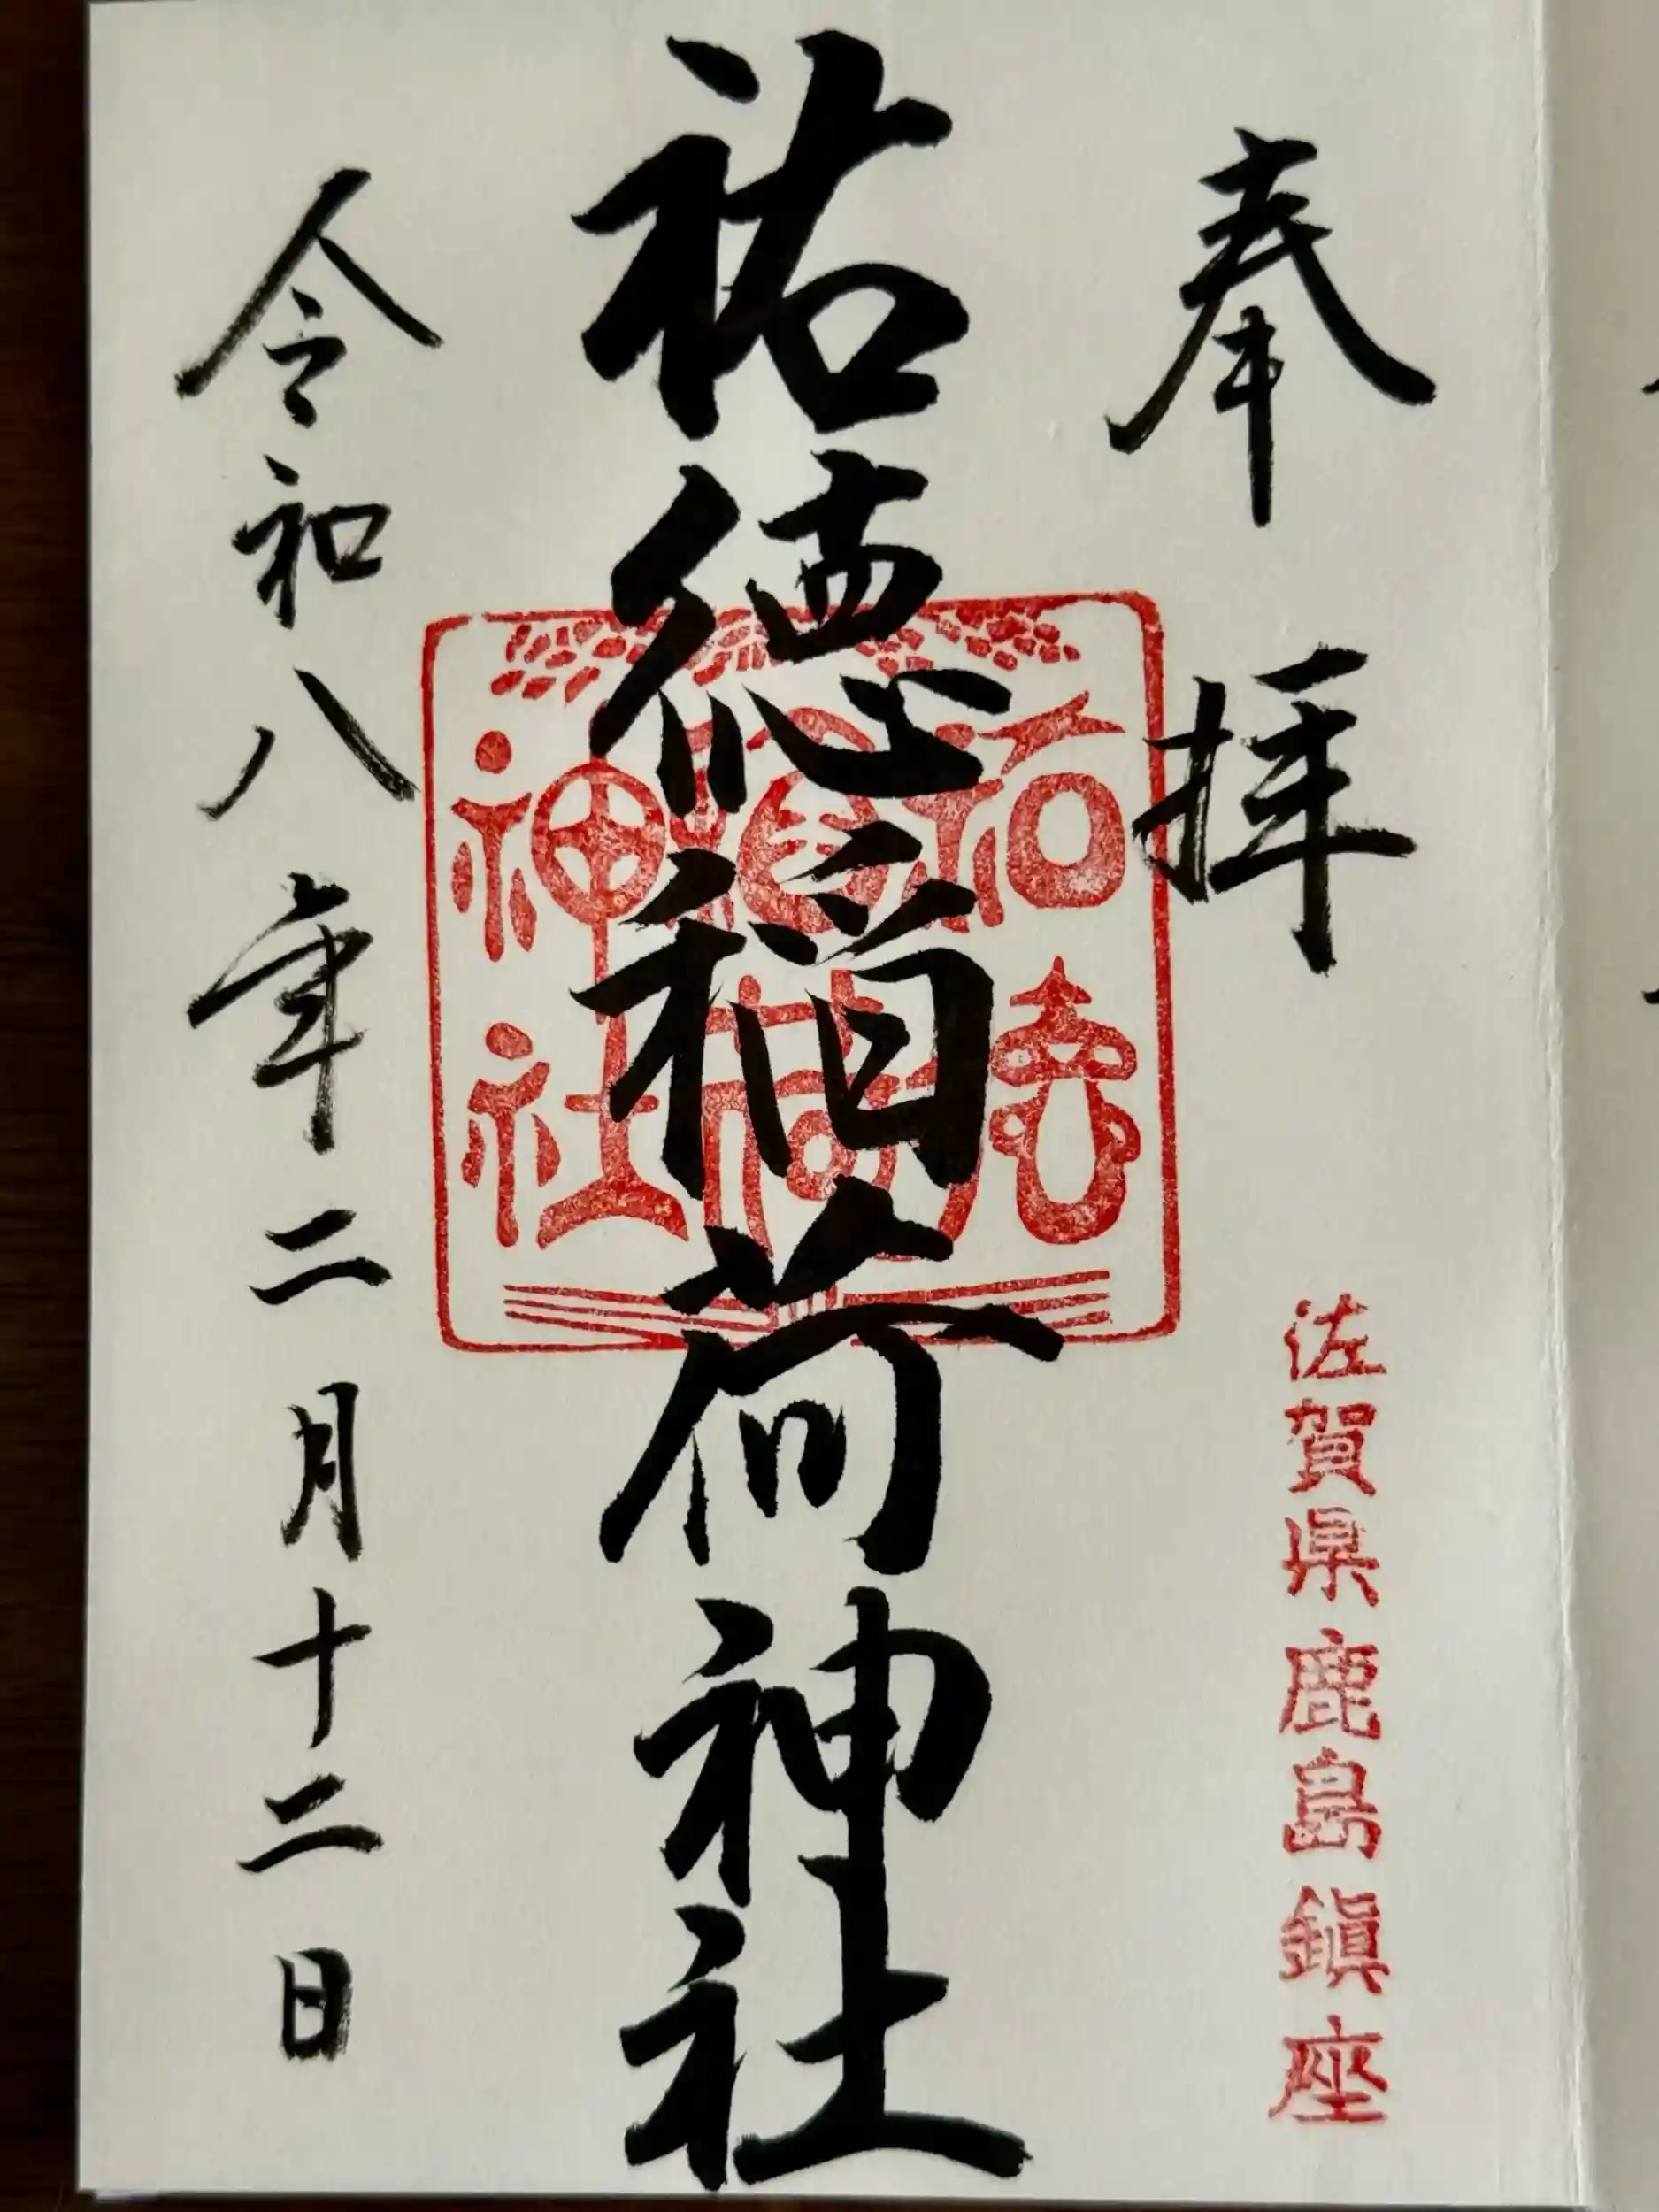 奉拝
佐賀県鹿島鎮座
祐徳稲荷神社
祐徳稲荷神社
令和八年二月十二日